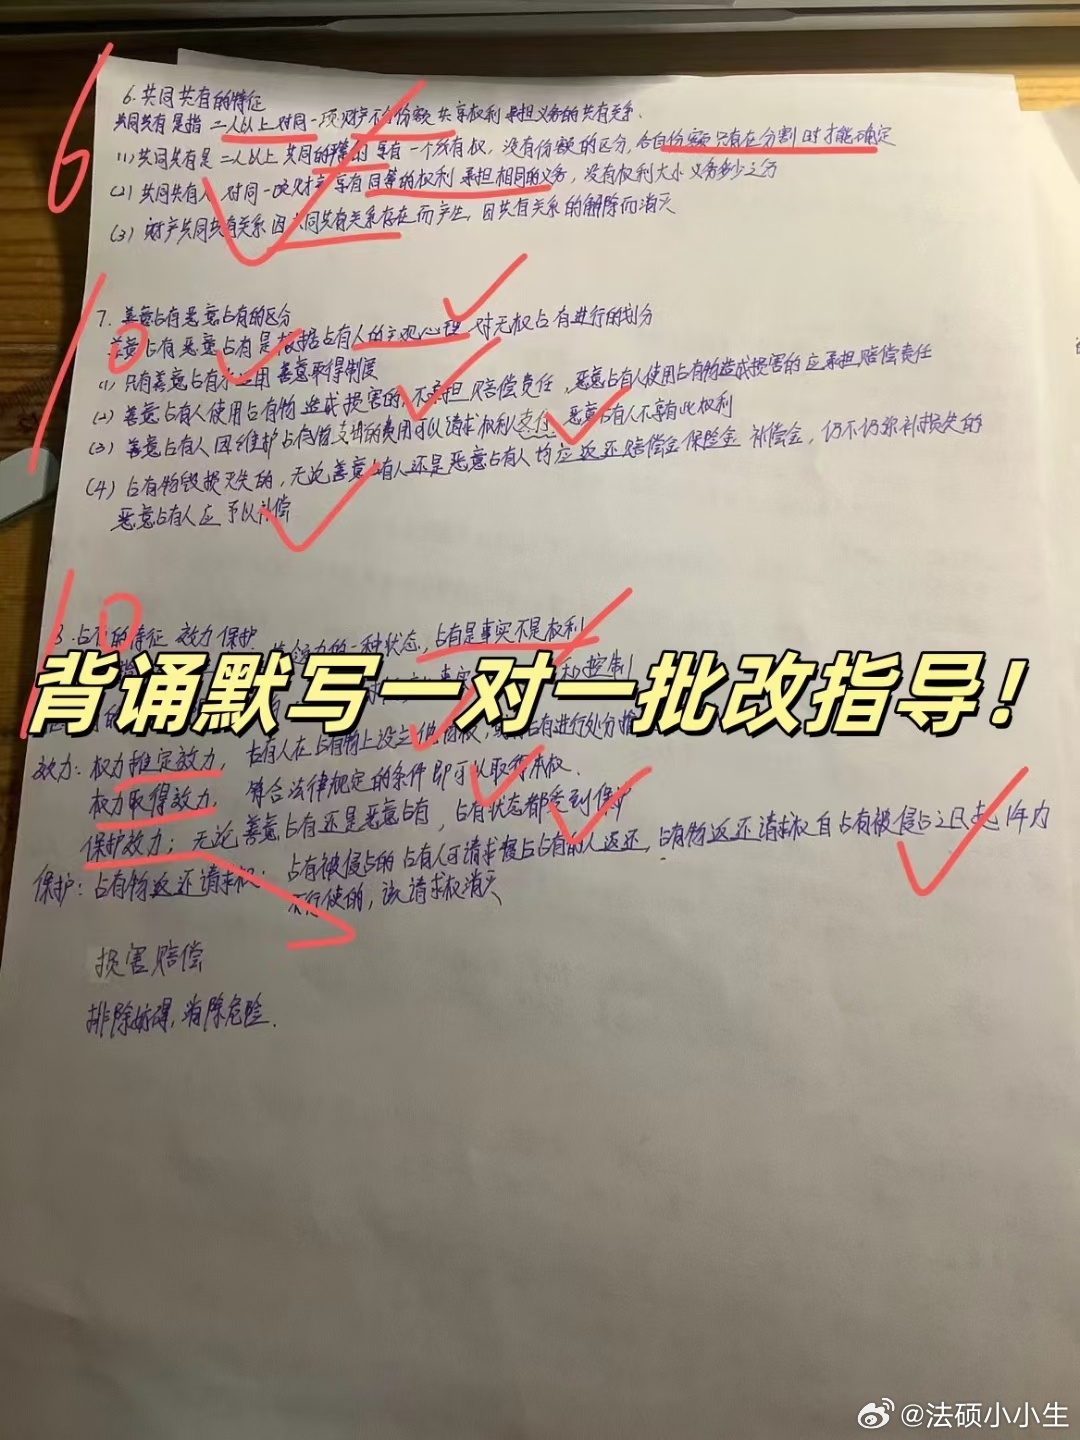 6
6.共同共有的特征
共同共有是指 二人以上对同一项财产不分份额共享权利 承担义务的共有关系.
(1)共同共有是二人以上共同的平等的享有一个所有权,没有份额的区分,各自份额只有在分割时才能确定
(2)共同共有人对同一项财产享有同等的权利 承担相同的义务,没有权利大小义务多少之分
(3)财产共同共有关系因共同共有关系存在而产生,因共有关系的解除而消灭
10
7.善意占有恶意占有的区分
善意占有恶意占有是根据占有人的主观心理 对无权占有进行的划分
(1)只有善意占有适用善意取得制度
(2)善意占有人使用占有物造成损害的,不承担赔偿责任,恶意占有人使用占有物造成损害的应承担赔偿责任
(3)善意占有人因维护占有物支出的费用可以请求权利人支付,恶意占有人不享有此权利
(4)占有物毁损灭失的,无论善意占有人还是恶意占有人均应返还赔偿金保险金 补偿金,仍不弥补损失的
恶意占有人应予以补偿
10
占有的特征 效力 保护
的一种状态,占有是事实不是权利
背诵默写一对一批改指导!
效力:权力推定效力,占有人在占有物上设立
权力取得效力,符合法律规定的条件即可以取得本权.
保护效力;无论善意占有还是恶意占有,占有状态都受到保护
保护:占有物返还请求权:占有被侵占的占有人可请求侵占占有的人返还,占有物返还请求权自占有被侵占之日起1年内
不行使的,该请求权消灭
损害赔偿
排除妨碍,消除危险.
@法硕小小生